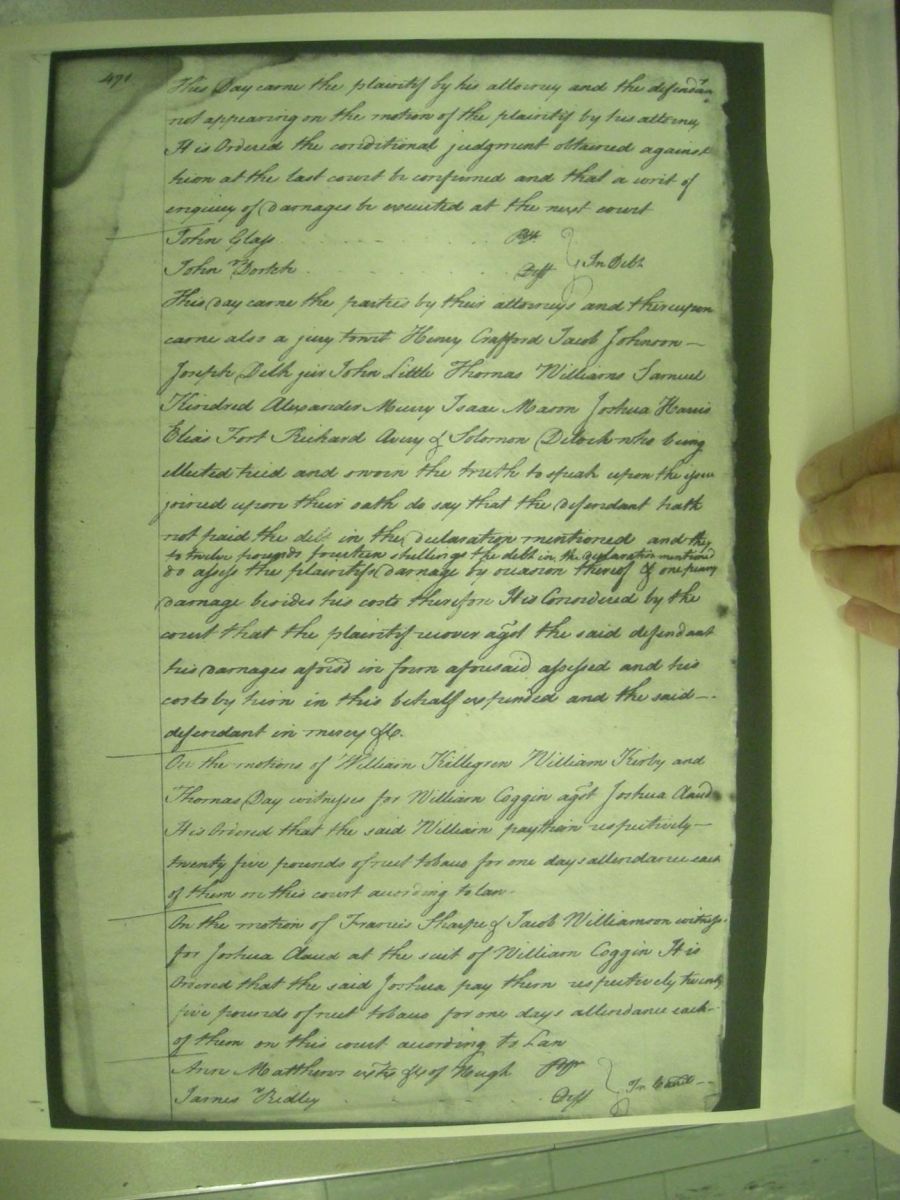 471
This Day came the plaintif by his attorney and the defendan
not appearing on the motion of the plaintif by his attorney
It is Ordered the conditional judgment obtained against
him at the last court be confirmed and that a writ of
enquiry of Damages be executed at the next court
John Glass Plt
John Dortch Deft In Debt
This day came the parties by their attorneys and thereupon
came also a jury towit Henry Crafford Jacob Johnson
Joseph Delk jur John Little Thomas Williams Samuel
Kindred Alexander Murry Isaac Mason Joshua Harris
Elias Fort Richard Avery & Solomon Deloch who being
elected tried and sworn the truth to speak upon the issue
joined upon their oath do say that the defendant hath
not paid the debt in the declaration mentioned and they
to twelve pounds fourteen shillings the debt in the declaration mentioned
do assess the plaintifs Damage by occasion thereof & one penny
damage besides his costs therefore It is Considered by the
court that the plaintif recover agst the said defendant
his Damages aforsd in form aforesaid assessed and his
costs by him in this behalf expended and the said
defendant in mercy &c.
On the motions of William Killegrew William Kirby and
Thomas Day witnesses for William Coggin agst Joshua Claud
It is Ordered that the said William pay them respectively
twenty five pounds of neet tobaco for one days attendance each
of them on this court according to Law
On the motion of Francis Sharpe & Jacob Williamson witness
for Joshua Claud at the suit of William Coggin It is
Ordered that the said Joshua pay them respectively twenty
five pounds of neet tobaco for one days attendance each
of them on this court according to Law
Ann Matthews extx &c of Hugh Plt
James Ridley Deft In